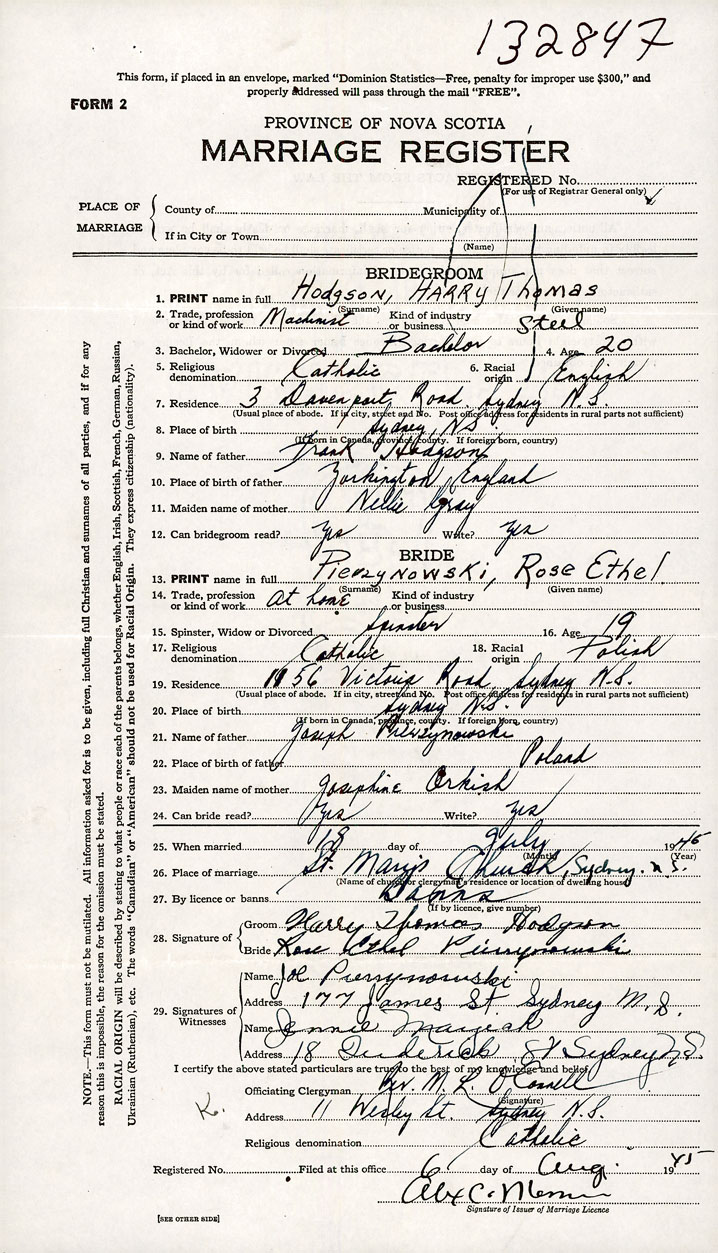 132847
This form, if placed in an envelope, marked "Dominion Statistics—Free, penalty for improper use $300," and
properly addressed will pass through the mail "FREE".
FORM 2
PROVINCE OF NOVA SCOTIA
MARRIAGE REGISTER
REGISTERED No.
(For use of Registrar General only)
PLACE OF MARRIAGE
County of Municipality of
If in City or Town
(Name)
BRIDEGROOM
1. PRINT name in full Hodgson, HARRY Thomas
(Surname) (Given name)
2. Trade, profession or kind of work Machinist Kind of industry or business Steel
3. Bachelor, Widower or Divorced Bachelor 4. Age 20
5. Religious denomination Catholic 6. Racial origin English
7. Residence 3 Davenport Road, Sydney N.S.
(Usual place of abode. If in city, street and No. Post office address for residents in rural parts not sufficient)
8. Place of birth Sydney, N.S.
(If born in Canada, province, county. If foreign born, country)
9. Name of father Frank Hodgson
10. Place of birth of father England
11. Maiden name of mother Nellie Gray
12. Can bridegroom read? Yes Write? Yes
BRIDE
13. PRINT name in full Pierzynowski, Rose Ethel
(Surname) (Given name)
14. Trade, profession or kind of work at home Kind of industry or business
15. Spinster, Widow or Divorced Spinster 16. Age 19
17. Religious denomination Catholic 18. Racial origin Polish
19. Residence 1156 Victoria Road, Sydney N.S.
(Usual place of abode. If in city, street and No. Post office address for residents in rural parts not sufficient)
20. Place of birth Sydney N.S.
(If born in Canada, province, county. If foreign born, country)
21. Name of father Joseph Pierzynowski
22. Place of birth of father Poland
23. Maiden name of mother Josephine Orkish
24. Can bride read? Yes Write? Yes
25. When married 18 day of July 1945
(Month) (Year)
26. Place of marriage St. Mary's Church, Sydney. N.S.
(Name of church or clergyman's residence or location of dwelling house)
27. By licence or banns Banns
(If by licence, give number)
28. Signature of Groom Harry Thomas Hodgson
Bride Rose Ethel Pierzynowski
29. Signatures of Witnesses Name Joe Pierzynowski
Address 177 James St Sydney N.S.
Name Jennie
Address 18 St Sydney N.S.
I certify the above stated particulars are true to the best of my knowledge and belief.
Officiating Clergyman Rev. M. L. O'Connell
(Signature)
K.
Address 11 Wesley St. Sydney N.S.
Religious denomination Catholic
Registered No. Filed at this office 6 day of Aug. 1945
Alex C.
Signature of Issuer of Marriage Licence
[SEE OTHER SIDE]
NOTE.—This form must not be mutilated. All information asked for is to be given, including full Christian and surnames of all parties, and if for any
reason this is impossible, the reason for the omission must be stated.
RACIAL ORIGIN will be described by stating to what people or race each of the parents belongs, whether English, Irish, Scottish, French, German, Russian,
Ukrainian (Ruthenian), etc. The words "Canadian" or "American" should not be used for Racial Origin. They express citizenship (nationality).